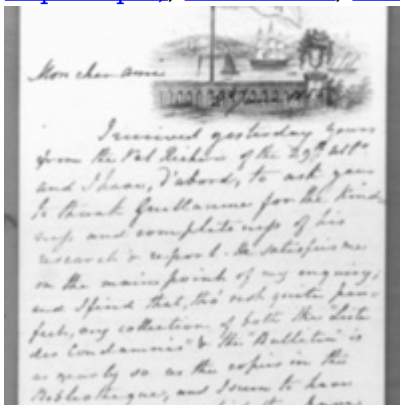 Mon cher ami
I received yesterday yours
from the Val Richer of the 29th ulto
and I have, d'abord, to ask you
to thank Guillaume for the kind-
ness and completeness of his
research & report. He satisfies me
on the main point of my enquiry,
and I find that, tho' not quite per-
fect, my collection of both the "Liste
des Condamnés" & the "Bulletin" is
as nearly so as the copies in the
Bibliotheque, and I seem to have